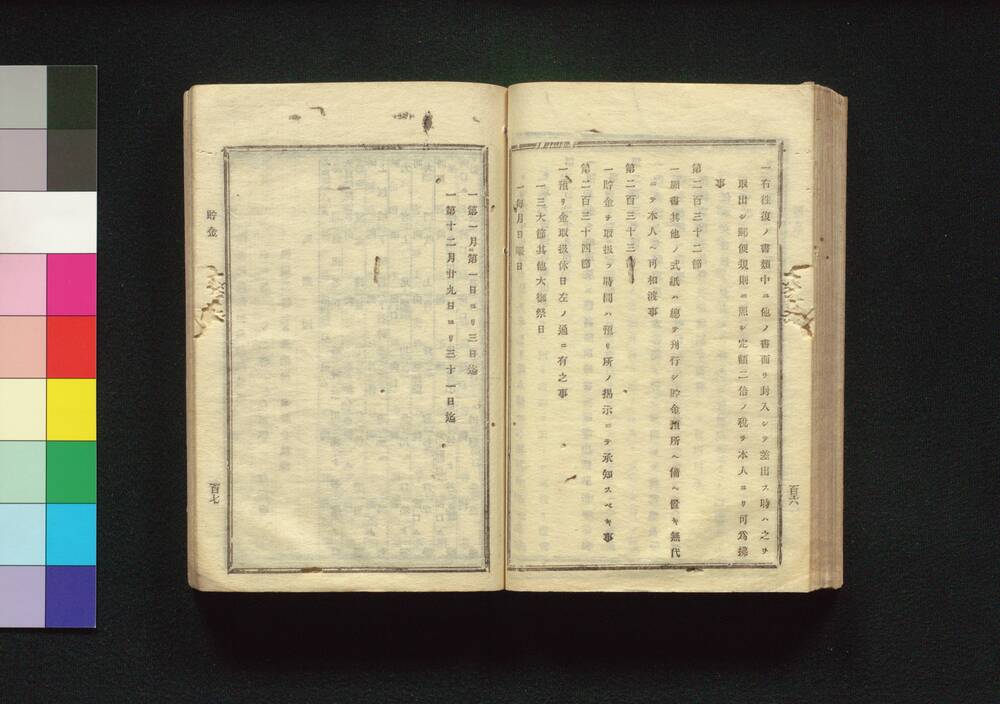 一右往復ノ書類中ニ他ノ書面ヲ封入シテ差出ス時ハ之ヲ
取出シ郵便規則ニ照シ定額二倍ノ税ヲ本人ヨリ可為拂
事
第二百三十二節
一願書其他ノ式紙ハ總テ刊行シ貯金預所ヘ備ヘ置キ無代
ニテ本人ヘ可相渡事
第二百三十三節
一貯金ヲ取扱フ時間ハ預リ所ノ揭示ニテ承知スベキ事
第二百三十四節
一預リ金取扱休日左ノ通ニ有之事
一三大節其他大御祭日
一每月日曜日
百六
一第一月第一日ヨリ三日迄
一第十二月廿九日ヨリ三十一日迄
貯金
百七